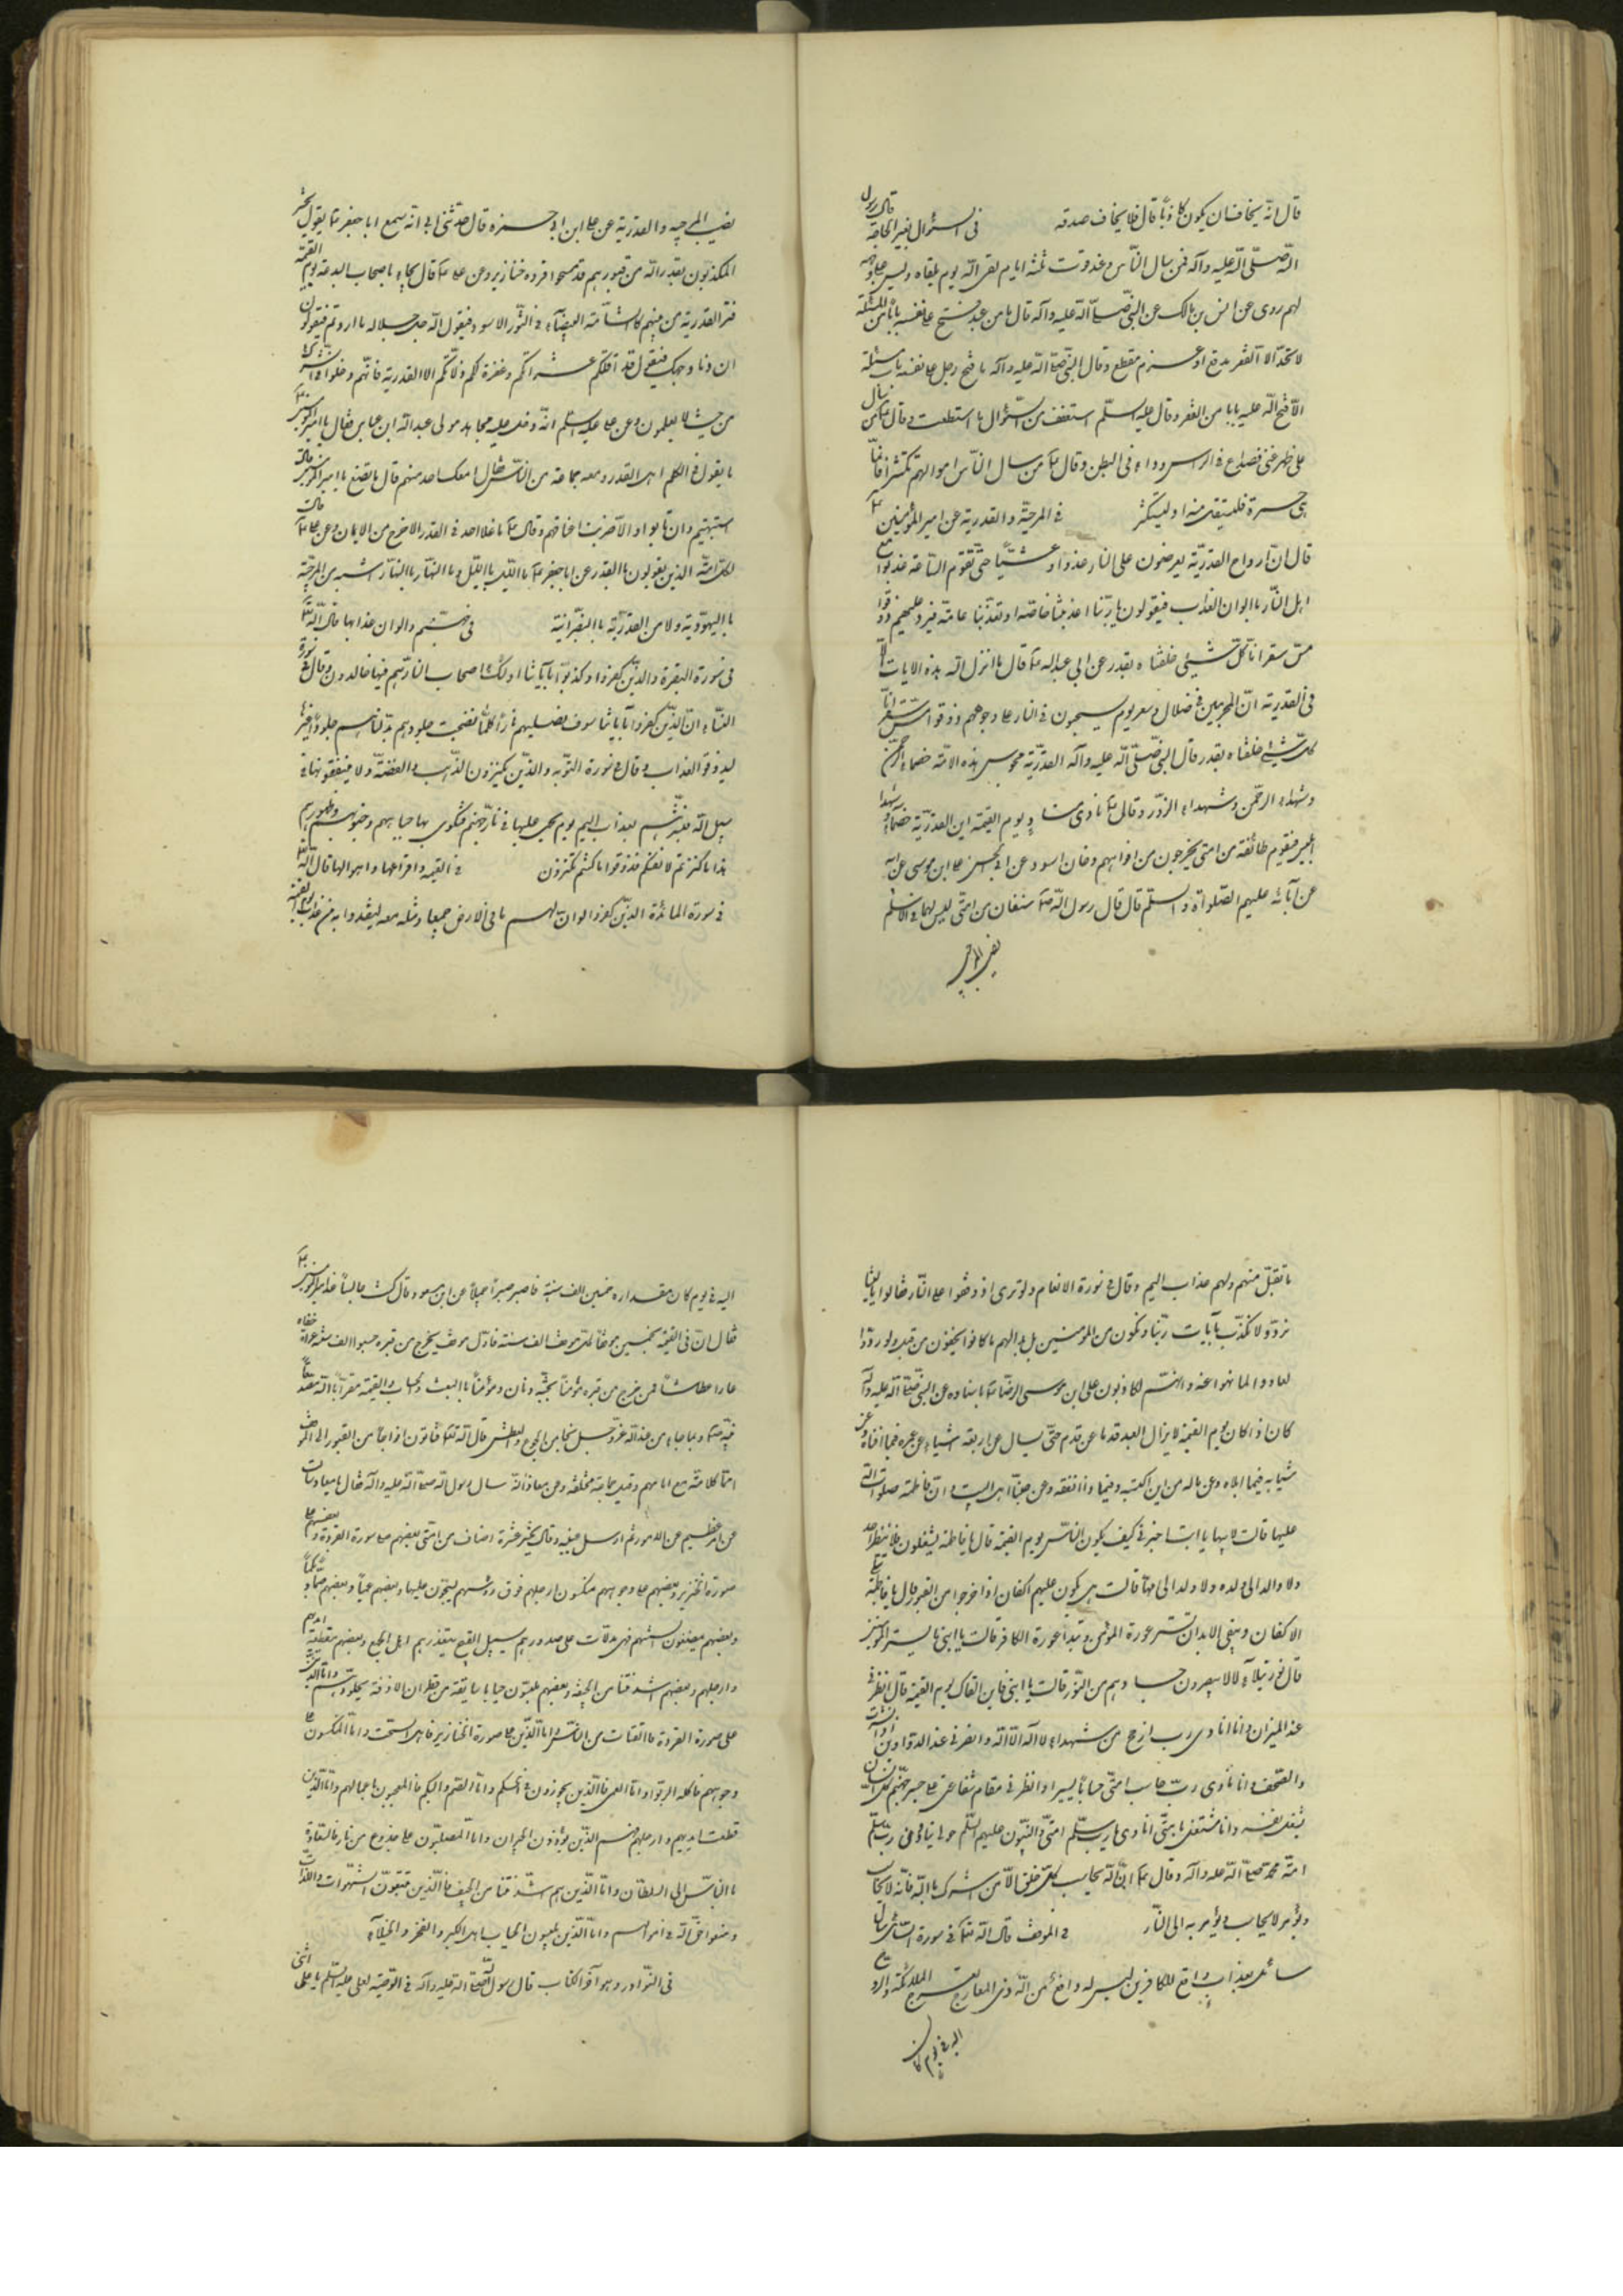 قال انّه يخاف ان يكون كاذباً قال فلا يخاف صدقه في السؤال بغير الحاجة قال رسول
اللّه صلّى اللّه عليه وآله فمن سال النّاس وعنده قوت ثلثة ايام لقى اللّه يوم يلقاه وليس على وجهه
لهم روى عن انس بن مالك عن النبىّ صلّى اللّه عليه وآله قال ما من عبد فتح على نفسه باباً من المسئلة
لا تحلّ الا لفقر مدقع او غرم مقطع وقال النبىّ صلّى اللّه عليه وآله ما فتح رجل على نفسه باب مسئلة
الّا فتح اللّه عليه بابا من الفقر وقال عليه السلم استعفف من السّؤال ما استطعت وقال من سال
على ظهر غنى فصداع فى الراس وداء فى البطن وقال من سال النّاس اموالهم تكثّرا فانّما
هى جمرة فليستقل منه او ليستكثر في المرجئة والقدرية عن امير المؤمنين
قال انّ ارواح القدريّة يعرضون على النار غدوا وعشيّاً حتّى تقوم السّاعة عذبوا مع
اهل النّار بالوان العذاب فيقولون يا ربّنا اعذبتنا خاصّة وتعذّبنا عامّة فيرد عليهم ذوقوا
مسّ سقر انا كلّ شيئ خلقناه بقدر عن ابى عبد الله قال ما انزل اللّه هذه الايات الا
فى القدرية انّ المجرمين فى ضلال وسعر يوم يسحبون فى النار على وجوههم ذوقوا مسّ سقر انّا
كلّ شيئ خلقناه بقدر قال النبىّ صلّى اللّه عليه وآله القدريّة مجوس هذه الامّة خصماء الرّحمن
وشهداء الرحمن وشهداء الزّور وقال نادى مناد يوم القيمة اين القدريّة خصماء اللّه وشهداء
ابليس فيقوم طائفة من امتى يخرج من افواههم دخان اسود عن ابى الحسن على ابن موسى عن ابيه
عن آبائه عليهم الصلواة والسلم قال قال رسول اللّه صنفان من امتى ليس لهما فى الاسلم
نصيب المرجيه
نصيب المرجيه والقدرية عن على ابن ابى حمزه قال حدّثنى ابى انّه سمع ابا جعفر يقول يحشر
المكذبون بقدر اللّه من قبورهم قد مسخوا قردة وخنازير وعن على قال يجاء باصحاب البدعة يوم القيمة
فترى القدرية من بينهم كالشامة البيضاء فى الثّور الاسود فيقول اللّه جل جلاله ما اردتم فيقولون
اردنا وجهك فيقول قد اقلتكم عثراتكم وغفرت لكم زلّاتكم الا القدرية فانّهم دخلوا فى الشرك
من حيث لا يعلمون وعن على عليه السلم انّه دخل عليه مجاهد مولى عبد اللّه ابن عباس فقال يا امير المؤمنين
ما يقول فى كلام اهل القدر ومعه جماعة من النّاس فقال امعك احد منهم قال ما تصنع يا امير المؤمنين قال
استتيبهم فان تابوا والا ضربت اعناقهم وقال ما غلا احد فى القدر الا خرج من الايمان وعن على قال
لكلّ امّة الذين يقولون بالقدر عن ابى جعفر ما الليل بالليل وما النهار بالنهار اشبه من المرجئة
باليهوديّة ولا من القدريّة بالنصرانيّة فى جهنّم والوان عذابها قال اللّه تعالى
فى سورة البقرة والذّين كفروا وكذبوا بآياتنا اولئك اصحاب النار هم فيها خالدون وقال فى سورة
النساء انّ الذّين كفروا بآياتنا سوف نصليهم ناراً كلّما نضجت جلودهم بدّلناهم جلوداً غيرها
ليذوقوا العذاب وقال فى سورة التوبه والذّين يكنزون الذّهب والفضّة ولا ينفقونها فى
سبيل اللّه فبشّرهم بعذاب اليم يوم يحمى عليها فى نار جهنّم فتكوى بها جباههم وجنوبهم وظهورهم
هذا ما كنزتم لانفسكم فذوقوا ما كنتم تكنزون فى القيمة وافزاعها واهوالها قال اللّه تعالى
فى سورة المائدة الذّين كفروا لو انّ لهم ما فى الارض جميعا ومثله معه ليفتدوا به من عذاب يوم القيمة
ما تقبّل منهم ولهم عذاب اليم وقال فى سورة الانعام ولو ترى اذ وقفوا على النّار فقالوا يا ليتنا
نردّ ولا نكذّب بآيات ربّنا ونكون من المؤمنين بل بدا لهم ما كانوا يخفون من قبل ولو ردّوا
لعادوا لما نهوا عنه وانّهم لكاذبون على ابن موسى الرضا باسناده عن النبىّ صلّى اللّه عليه وآله
كان اذا كان يوم القيمة لا يزال العبد قدماً عن قدم حتّى يسال عن اربعة اشياء عن عمره فيما افناه وعن
شبابه فيما ابلاه وعن ماله من اين اكتسبه وفيما ذا انفقه وعن حبنّا اهل البيت وان فاطمة صلوات اللّه
عليها قالت لابيها يا ابت اخبرنى كيف يكون النّاس يوم القيمة قال يا فاطمة يشغلون فلا ينظر احد
ولا والد الى ولده ولا ولد الى امّه قالت هل يكون عليهم اكفان اذا خرجوا من القبور قال يا فاطمة تبلى
الاكفان ويبقى الابدان تستر عورة المؤمن وتبدأ عورة الكافر قالت يا ابتى ما يستر المؤمنين
قال نور يتلألأ لا يبصرون اجسادهم من النّور قالت يا ابتى فاين القاك يوم القيمة قال انظرى
عند الميزان وانا انادى رب ارجح من شهد ان لا اله الّا اللّه وانظرنى عند الدواوين اذا نشرت
والصّحف وانا نادى ربّ حاسب امتّى حساباً يسيراً وانظر فى مقام شفاعتى على جسر جهنّم كلّ انسان
يشغل بنفسه وانا مشتغل بامتّى انادى يا ربّ سلّم امتى والنبيّون عليهم السّلم حولى ينادون ربّ سلّم
امّة محمّد صلّى اللّه عليه وآله وقال انّ اللّه يحاسب كلّ خلق الّا من اشرك باللّه فانّه لا يحاسب
ويؤمر به الى النّار فى الموقف قال اللّه تعالى فى سورة سال سائل
سائل بعذاب واقع للكافرين ليس له دافع من اللّه ذى المعارج تعرج الملئكة والروح
اليه فى يوم كان
اليه فى يوم كان مقداره خمسين الف سنة فاصبر صبراً جميلاً عن ابن مسعود قال كنت جالساً عند امير المؤمنين
فقال انّ فى القيمة لخمسين موقفاً كلّ موقف الف سنة فاوّل موقف يخرج من قبره حبسوا الف سنة عراة حفاة
جياعا عطاشاً فمن خرج من قبره مؤمناً بجنّته ونار ومؤمناً بالبعث والحساب والقيمة مقرّاً باللّه مصدّقا
نبيّه وبما جاء من عند اللّه عزّ وجل نجا من الجوع والعطش قال اللّه تعالى فتأتون افواجاً من القبور الى الموقف
امماً كل امّة مع امامهم وقيل جماعة مختلفة وعن معاذ انّه سال رسول اللّه صلّى اللّه عليه وآله فقال يا معاذ سالت
عن امر عظيم من الامور ثم ارسل عينيه وقال يحشر عشرة اصناف من امتى بعضهم على صورة القردة وبعضهم على
صورة الخنزير وبعضهم على وجوههم منكسون ارجلهم فوق رؤسهم يسحبون عليها وبعضهم عمياً وبعضهم صمّاً وبكماً
وبعضهم يمضغون السنتهم فهى مدلّات على صدورهم يسيل القيح يتقذّرهم اهل الجمع وبعضهم مقطّعة ايديهم
وارجلهم وبعضهم اشد نتنا من الجيفة وبعضهم ملبسون جباباً سابغة من قطران لازقة بجلودهم وامّا الذّين
على صورة القردة فالقتات من النّاس وامّا الذّين على صورة الخنازير فاهل السحت وامّا المنكسون على
وجوههم فاكلة الربوا وامّا العمى فالّذين يجورون فى الحكم وامّا الصّم والبكم فالمعجبون باعمالهم وامّا الذّين
قطعت ايديهم وارجلهم فهم الذّين يؤذون الجيران وامّا المصلّبون على جذوع من نار فالسّعاة
بالنّاس الى السلطان وامّا الّذين هم اشدّ نتنا من الجيف فالّذين يتّبعون الشّهوات واللذّات
ومنعوا حقّ اللّه فى اموالهم وامّا الذّين يلبسون الجباب فاهل الكبر والفخر والخيلاء
فى النّوادر وهو آخر الكتاب قال رسول اللّه صلّى اللّه عليه وآله فى الوصيّة لعلى عليه السّلم يا على اثنى